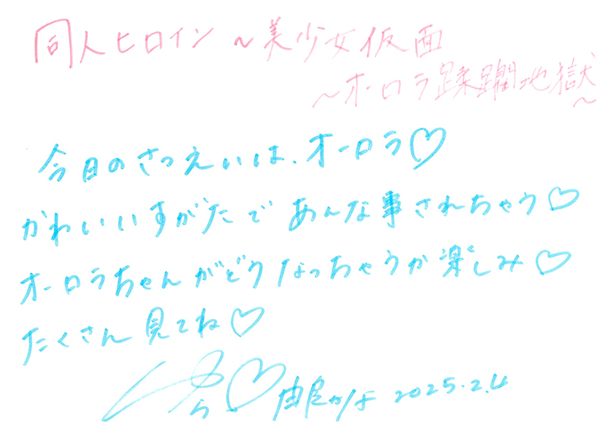 同人ヒロイン～美少女仮面
～オーロラ蹂躙地獄～
今日のさつえいは、オーロラ♡
かわいいすがたであんな事されちゃう♡
オーロラちゃんがどうなっちゃうか楽しみ♡
たくさん見てね♡
由良かな 2025.2.4